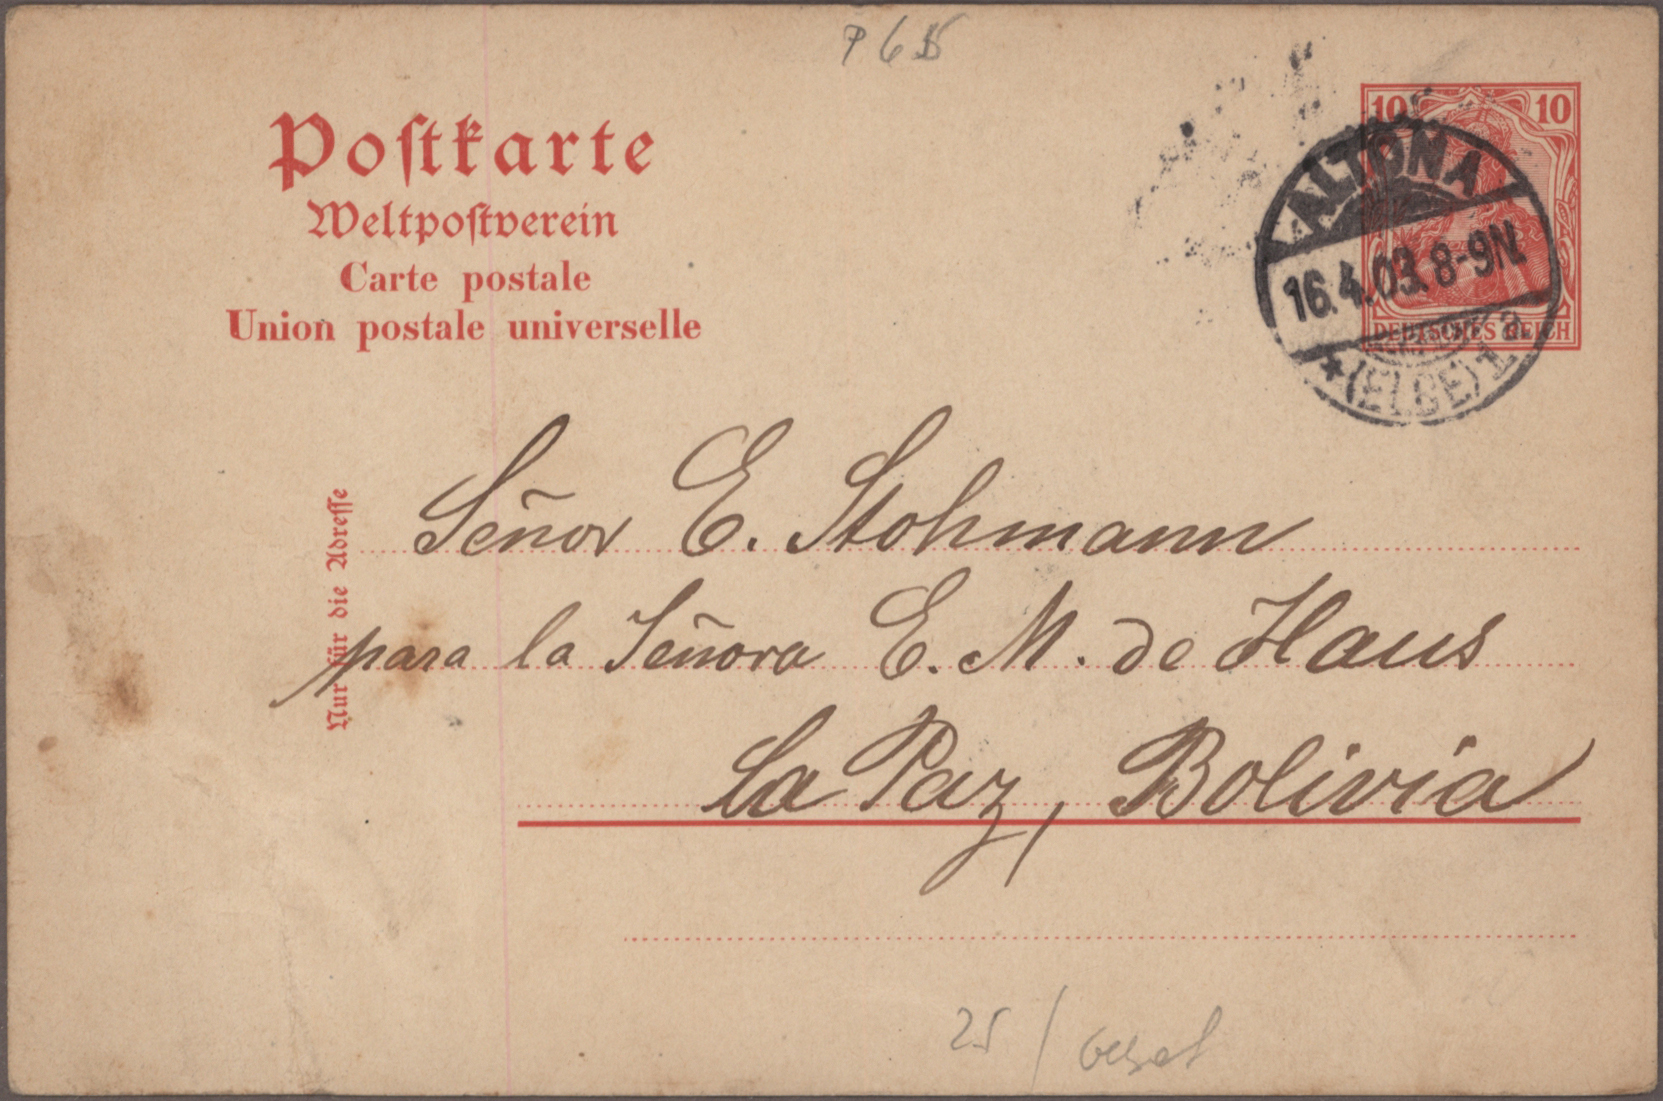 P 6
Postkarte
Weltpostverein
Carte postale
Union postale universelle
10 10
DEUTSCHES REICH
ALTONA
16.4.03. 8-9N.
* (ELBE) 1 a
Nur für die Adresse
Señor E. Stohmann
para la Señora E. M. de Haus
La Paz, Bolivia
25 /